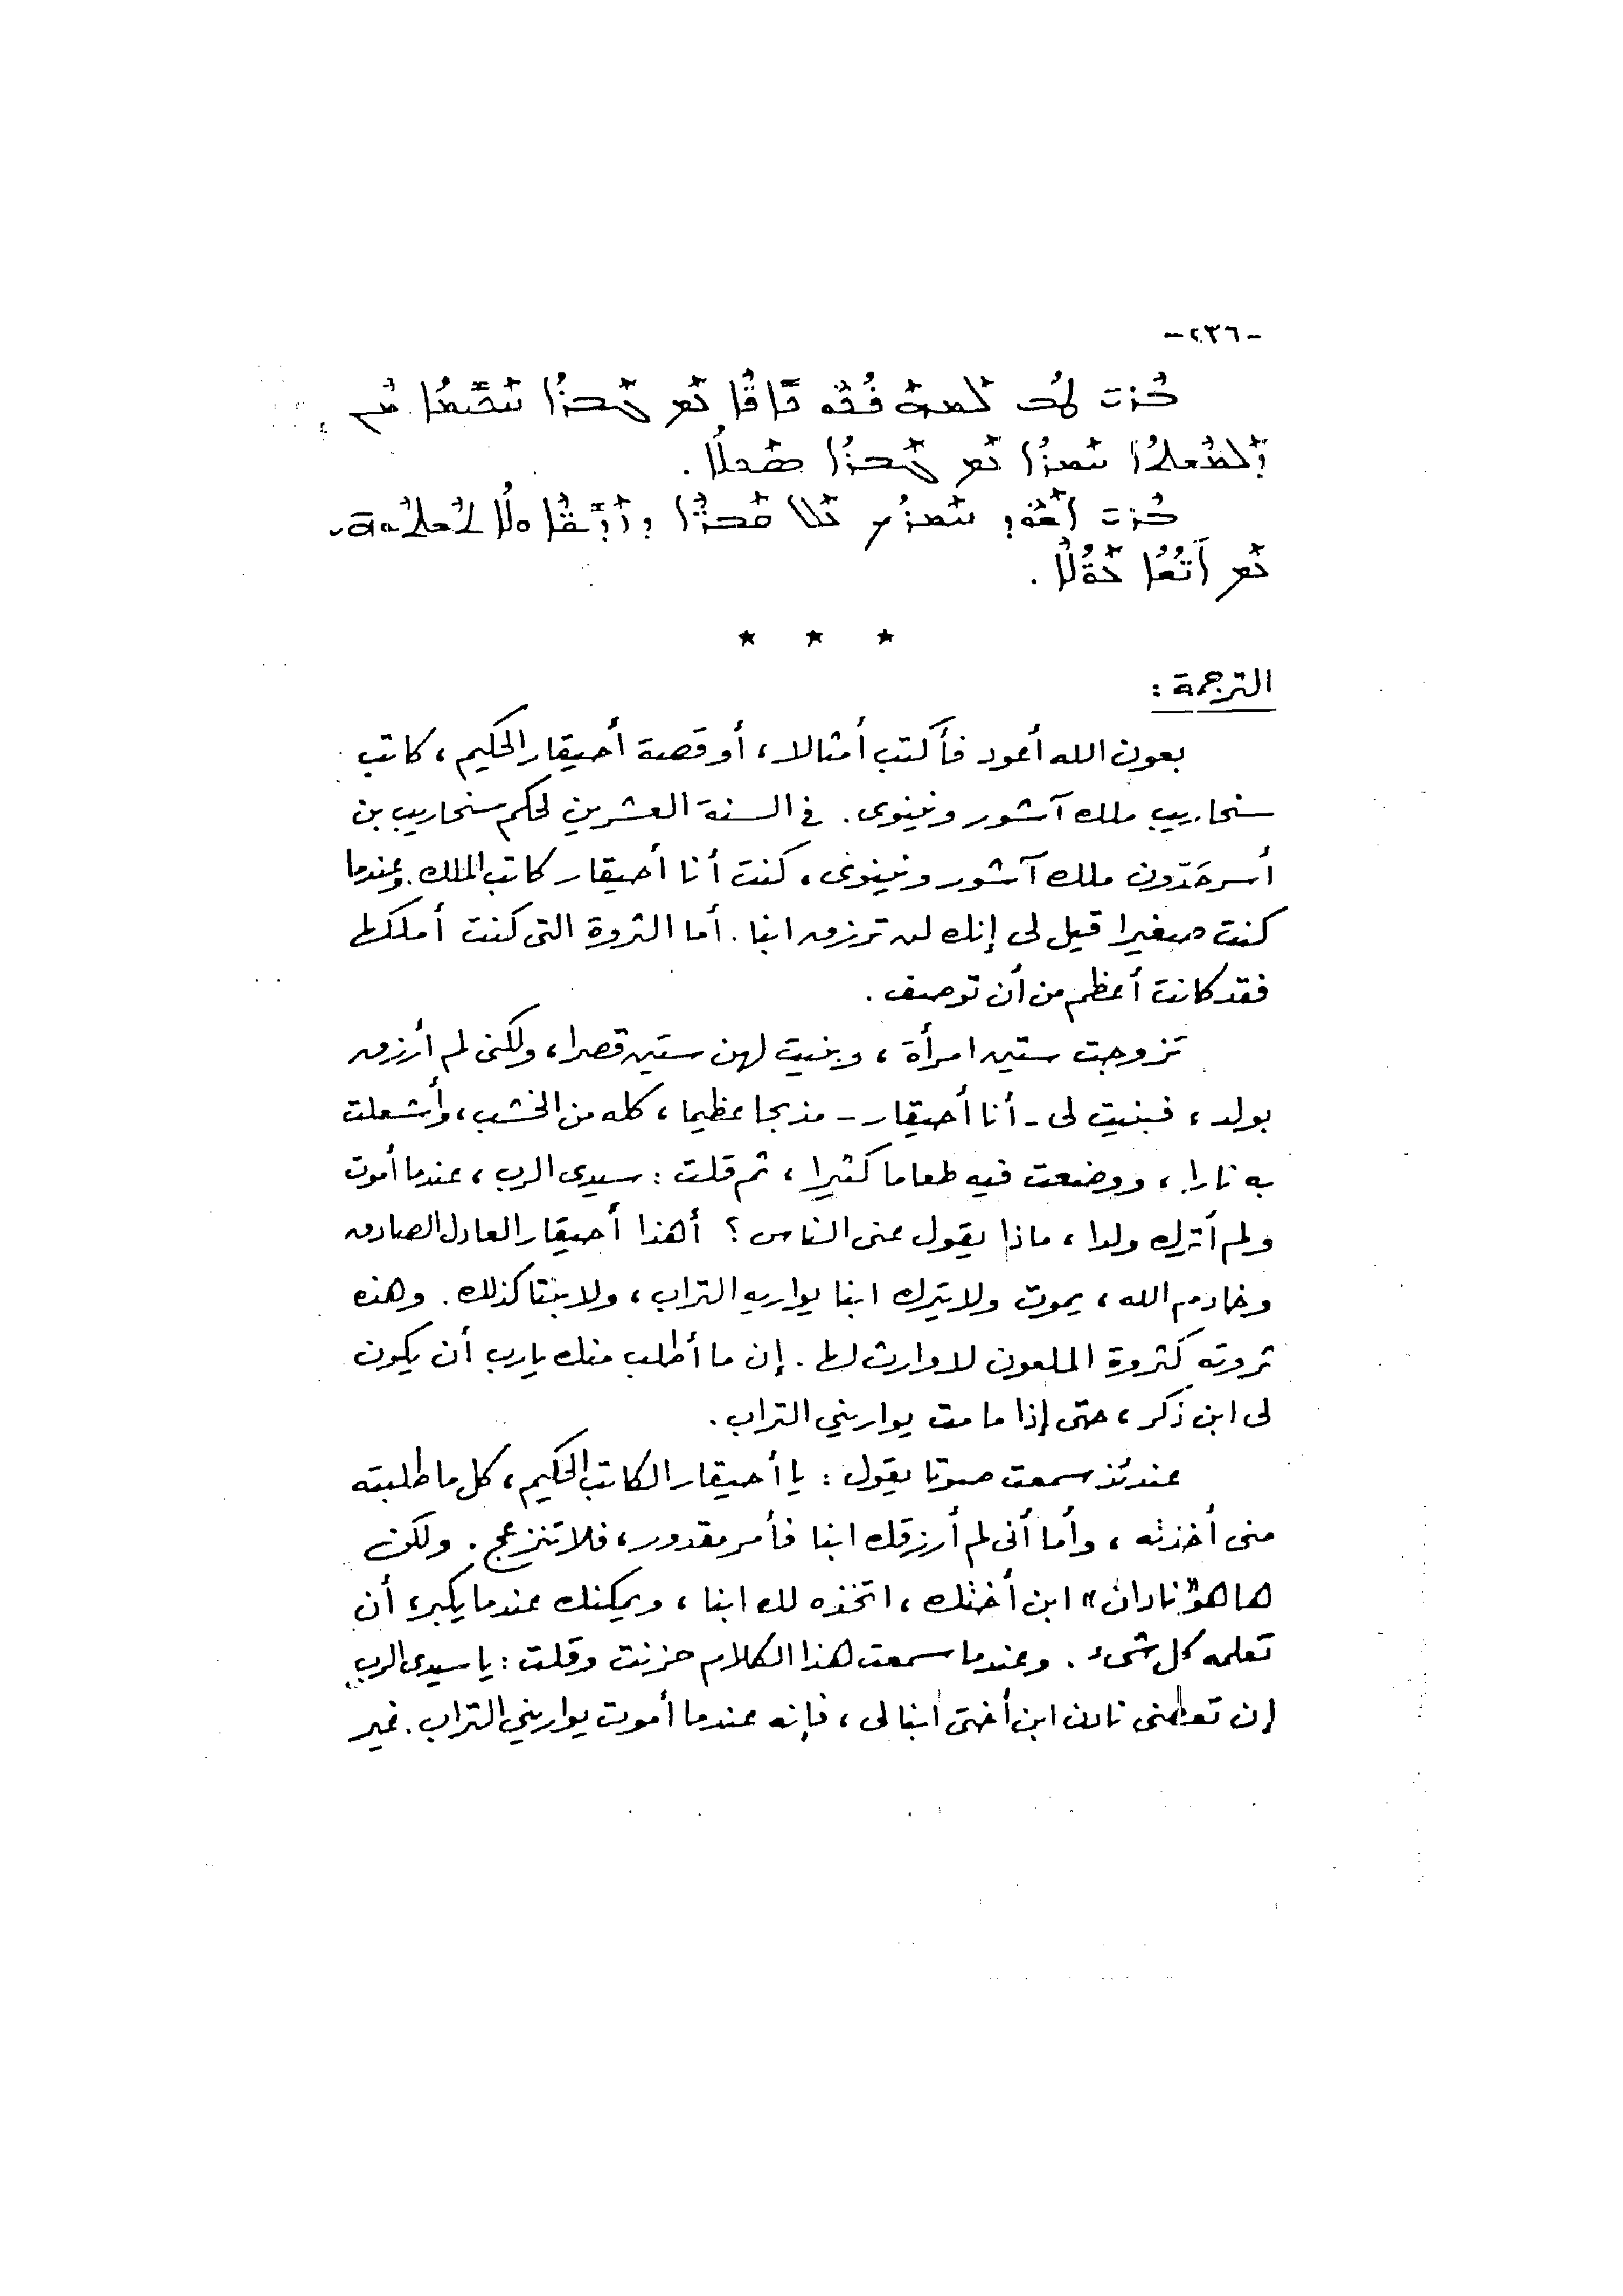 -٢٣٦-
ܒܪܝ ܛܒ ܟܐܦܐ ܥܡ ܓܒܪܐ ܚܟܝܡܐ ܡܢ
ܕܠܡܫܬܐ ܚܡܪܐ ܥܡ ܓܒܪܐ ܣܟܠܐ.
ܒܪܝ ܐܫܘܕ ܚܡܪܟ ܥܠ ܩܒܪ̈ܐ ܕܙܕܝܩ̈ܐ ܘܠܐ
ܥܡ ܐܢܫܐ ܥܘܠܐ.
* * *
الترجمة :
بعون الله أعود فأكتب أمثالا، أو قصة أحيقار الحكيم، كاتب
سنحاريب ملك آشور ونينوى. في السنة العشرين لحكم سنحاريب بن
أسرحَدّون ملك آشور ونينوى، كنت أنا أحيقار كاتب الملك. وعندما
كنت صغيرا قيل لى إنك لن ترزق ابنا. أما الثروة التى كنت أملكها
فقد كانت أعظم من أن توصف.
تزوجت ستين امرأة، وبنيت لهن ستين قصرا، ولكنى لم أرزق
بولد، فبنيت لى - أنا أحيقار - مذبحا عظيما، كله من الخشب، وأشعلت
به نارا، ووضعت فيه طعاما كثيرا، ثم قلت : سيدى الرب، عندما أموت
ولم أترك ولدا، ماذا يقول عنى الناس ؟ أهذا أحيقار العادل الصادق
وخادم الله، يموت ولا يترك ابنا يواريه التراب، ولا بنتا كذلك. وهذه
ثروته كثروة الملعون لا وارث لها. إن ما أطلب منك يارب أن يكون
لى ابن ذكر، حتى إذا ما مت يواريني التراب.
عندئذ سمعت صوتا يقول : يا أحيقار الكاتب الحكيم، كل ما طلبته
منى أخذته، وأما أنى لم أرزقك ابنا فأمر مقدور، فلا تنزعج. ولكن
ها هو «نادان» ابن أختك، اتخذه لك ابنا، ويمكنك عندما يكبر، أن
تعلمه كل شىء. وعندما سمعت هذا الكلام حزنت وقلت : يا سيدى الرب
إن تعطنى نادن ابن أختى ابنا لى، فإنه عندما أموت يواريني التراب. غير